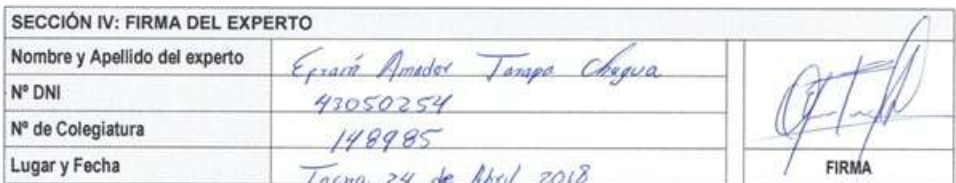 SECCIÓN IV: FIRMA DEL EXPERTO
Nombre y Apellido del experto Efraín Amador Tarapa Chagua
Nº DNI 43050254
Nº de Colegiatura 148985
Lugar y Fecha Tacna, 24 de Abril 2018
FIRMA